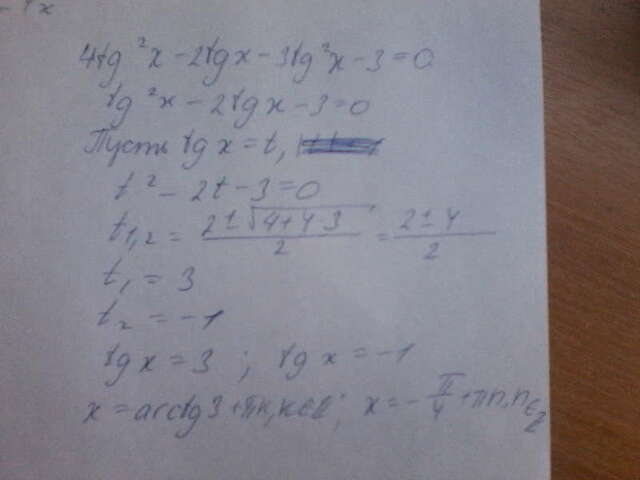 4tg²x - 2tgx - 3tg²x - 3 = 0
tg²x - 2tgx - 3 = 0
Пусть tgx = t,
t² - 2t - 3 = 0
t₁,₂ = (2 ± √(4+4·3))/2 = (2 ± 4)/2
t₁ = 3
t₂ = -1
tgx = 3 ; tgx = -1
x = arctg3 + πn, n∈Z; x = -π/4 + πn, n∈Z